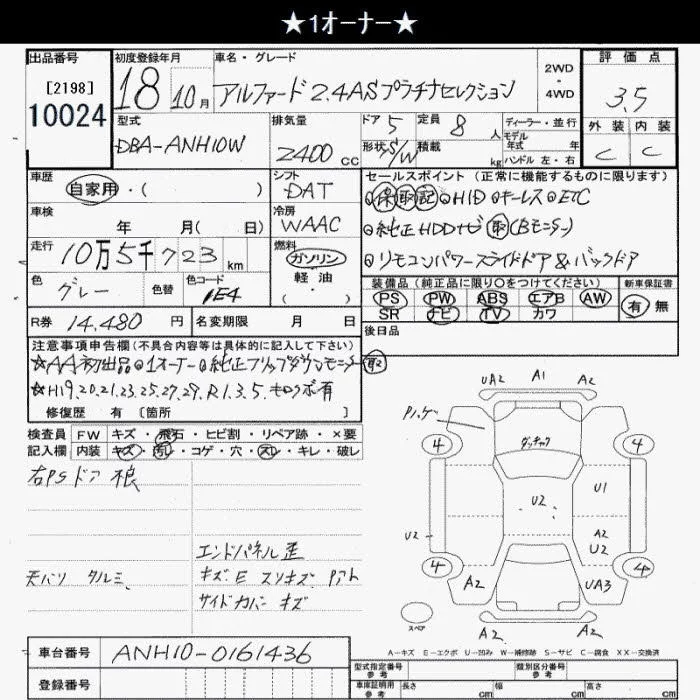 ★1オーナー★
出品番号 初度登録年月 車名・グレード 2WD・4WD 評価点
[2198]
10024
18 10月 アルファード 2.4AS プラチナセレクション 3.5
型式 排気量 ドア 5 定員 8人 ディーラー・並行 外装 内装
DBA-ANH10W 2400cc 形状 S/W 積載 kg モデル年式 年 ハンドル 左・右 C C
車歴 自家用・( ) シフト DAT セールスポイント(正常に機能するものに限ります)
⊙保取記⊙HID⊙キーレス⊙ETC
車検 年 月( 日) 冷房 WAAC
⊙純正HDDナビ取(Bモニター)
走行 10万5千723km 燃料 ガソリン・軽油・( )
⊙リモコンパワースライドドア&バックドア
色 グレー 色替 色コード 1E4
装備品(純正品に限り○をつけてください) 新車保証書
PS PW ABS エアB AW 有 無
SR ナビ TV カワ
R券 14,480円 名変期限 月 日 後日品
注意事項申告欄(不具合内容等は具体的に記入して下さい)
☆AA初出品⊙1オーナー⊙純正フリップダウンモニター取
☆H19.20.21.23.25.27.29.R1.3.5.キロクボ有
修復歴 有 [箇所 ]
検査員記入欄 FW キズ・飛石・ヒビ割・リペア跡・×要
内装 キズ・汚レ・コゲ・穴・スレ・キレ・破レ
右PSドア 根
エンドパネル歪
天バリ タルミ、 キズE スリキズ Pアト
サイドカバー キズ
UA2 A1 A2
Pハゲ
4 4
ダッチャク
U2 U1
U2 A2
U2
4 4
A2 UA3
A2 A2
スペア
A-キズ E-エクボ U-凹み W-補修跡 S-サビ C-腐食 XX-交換済
車台番号 ANH10-0161436
型式指定番号 参考 類別区分番号 参考
登録番号
車庫証明用 参考 長さ cm 幅 cm 高さ cm